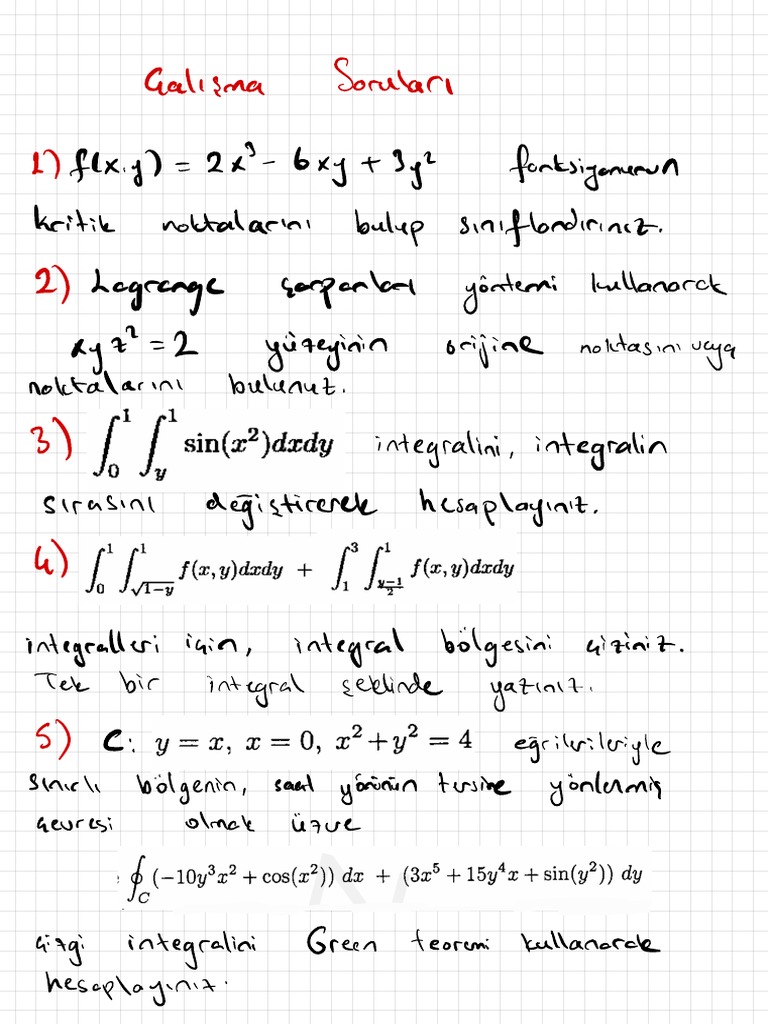 Çalışma Soruları
1) f(x,y) = 2x³ - 6xy + 3y² fonksiyonunun
kritik noktalarını bulup sınıflandırınız.
2) Lagrange çarpanları yöntemi kullanarak
xyz² = 2 yüzeyinin orijine noktasını veya
noktalarını bulunuz.
3) ∫₀¹ ∫_y¹ sin(x²)dxdy integralini, integralin
sırasını değiştirerek hesaplayınız.
4) ∫₀¹ ∫_{√(1-y)}¹ f(x,y)dxdy + ∫₁³ ∫_{(y-1)/2}¹ f(x,y)dxdy
integralleri için, integral bölgesini çiziniz.
Tek bir integral şeklinde yazınız.
5) C: y = x, x = 0, x² + y² = 4 eğrileriyle
sınırlı bölgenin, saat yönünün tersine yönlenmiş
çevresi olmak üzere
∮_C (−10y³x² + cos(x²)) dx + (3x⁵ + 15y⁴x + sin(y²)) dy
çizgi integralini Green teoremi kullanarak
hesaplayınız.